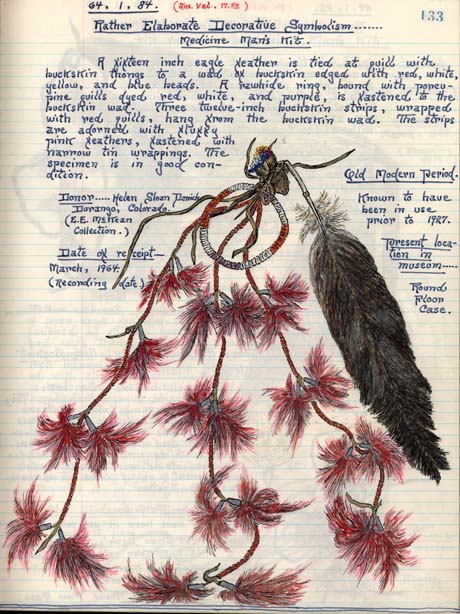 64.1.84. (Res. Val., 17.50)
133
Rather Elaborate Decorative Symbolism.......
Medicine Man's Kit.
A sixteen inch eagle feather is tied at quill with
buckskin thongs to a wad of buckskin edged with red, white,
yellow, and blue beads. A rawhide ring, bound with porcu-
pine quills dyed red, white, and purple, is fastened to the
buckskin wad. Three twelve-inch buckskin strips, wrapped
with red quills, hang from the buckskin wad. The strips
are adorned with fluffy
pink feathers, fastened with
narrow tin wrappings. The
specimen is in good con-
dition.
Donor..... Helen Sloan Daniels
Durango, Colorado.
(E.E. McKean
Collection.)
Date of receipt—
March, 1964.
(Recording date.)
Old Modern Period.
Known to have
been in use
prior to 1927.
Present loca-
tion in
museum.....
Round
Floor
Case.